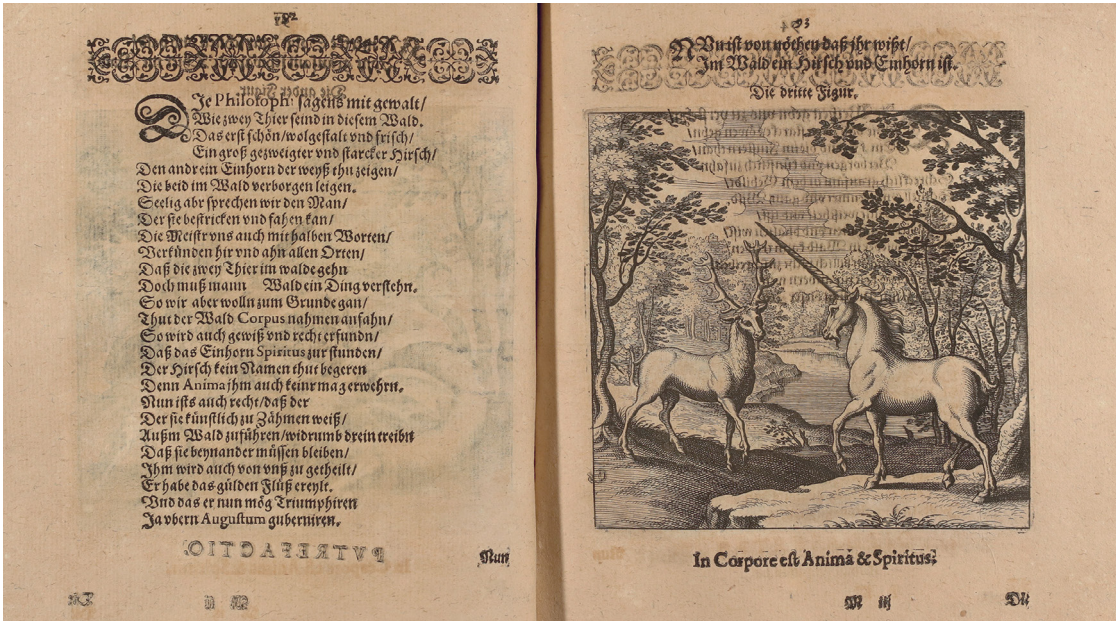 Je Philosoph: sagens mit gewalt/
Wie zwey Thier seind in diesem Wald.
Das erst schön/wolgestalt vnd frisch/
Ein groß gezweigter vnd starcker Hirsch/
Den andr ein Einhorn der weyß thu zeigen/
Die beid im Wald verborgen leigen.
Seelig abr sprechen wir den Man/
Der sie bestricken vnd fahen kan/
Die Meistr vns auch mit halben Worten/
Verkünden hir vnd ahn allen Orten/
Daß die zwey Thier im walde gehn
Doch muß mann Wald ein Ding verstehn.
So wir aber wolln zum Grunde gan/
Thut der Wald Corpus nahmen anfahn/
So wird auch gewiß vnd recht erfundn/
Daß das Einhorn Spiritus zur stunden/
Der Hirsch kein Namen thut begeren
Denn Anima jhm auch keinr mag erwehrn.
Nun ists auch recht/daß der
Der sie künstlich zu Zähmen weiß/
Außm Wald zuführen/widrumb drein treibn
Daß sie beynander müssen bleiben/
Jhm wird auch von vnß zu getheilt/
Er habe das gülden Flüß ereylt.
Vnd das er nun mög Triumphiren
Ja vbern Augustum guberniren.
Nun
93
NVn ist von nöthen daß jhr wißt/
Jm Wald ein Hirsch vnd Einhorn ist.
Die dritte Figur.
In Corpore est Anima & Spiritus.
M iij